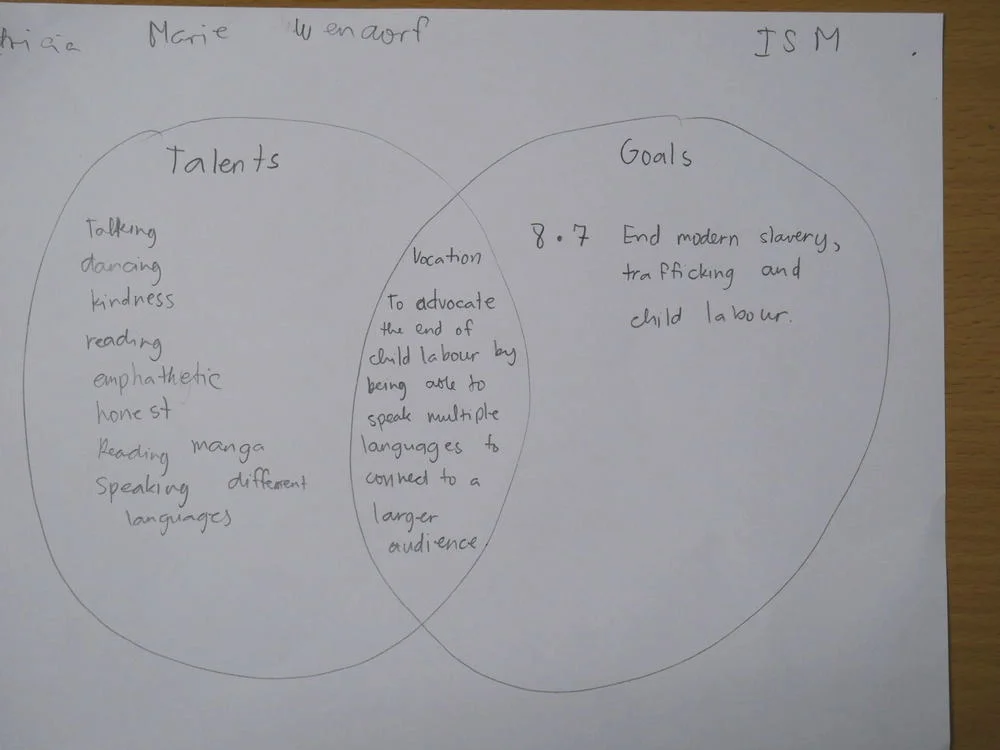 Marie Wendorf
ISM
Talents
Talking
dancing
kindness
reading
emphathetic
honest
Reading manga
Speaking different
languages
Vocation
To advocate
the end of
child labour by
being able to
speak multiple
languages to
connect to a
larger
audience
Goals
8.7 End modern slavery,
trafficking and
child labour.